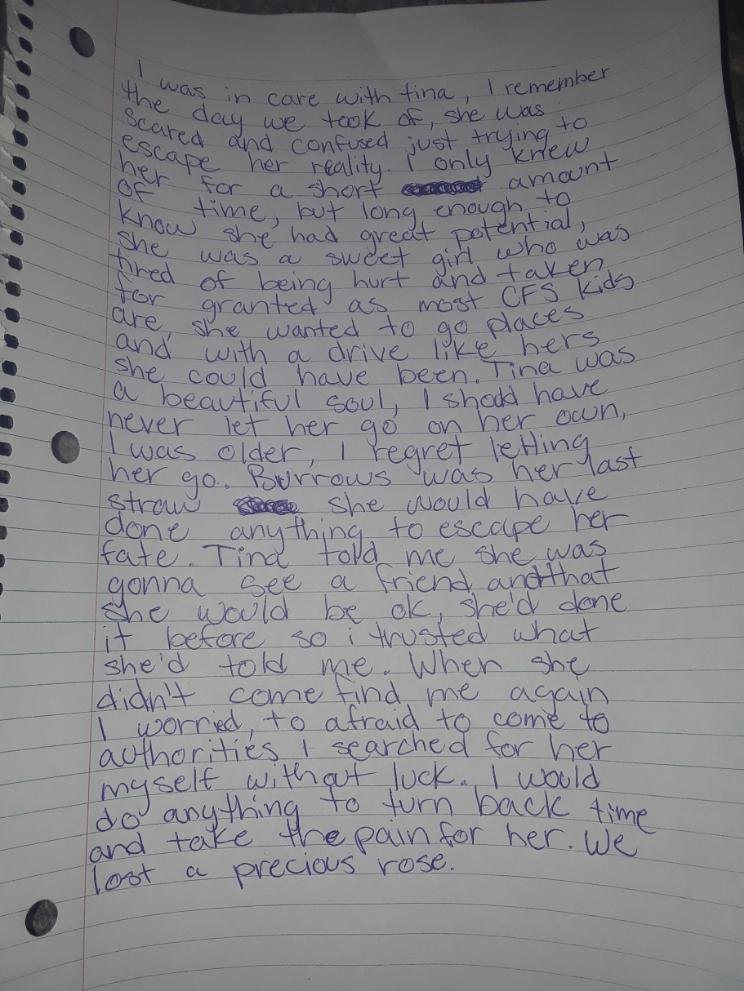 I was in care with tina, I remember
the day we took of, she was
scared and confused just trying to
escape her reality. I only knew
her for a short amount
of time, but long enough to
know she had great potential,
she was a sweet girl who was
tired of being hurt and taken
for granted as most CFS kids
are, she wanted to go places
and with a drive like hers
she could have been. Tina was
a beautiful soul, I should have
never let her go on her own,
I was older, I regret letting
her go. Burrows was her last
straw she would have
done anything to escape her
fate. Tina told me she was
gonna see a friend and that
she would be ok, she'd done
it before so i trusted what
she'd told me. When she
didn't come find me again
I worried, to afraid to come to
authorities I searched for her
myself without luck. I would
do anything to turn back time
and take the pain for her. We
lost a precious rose.